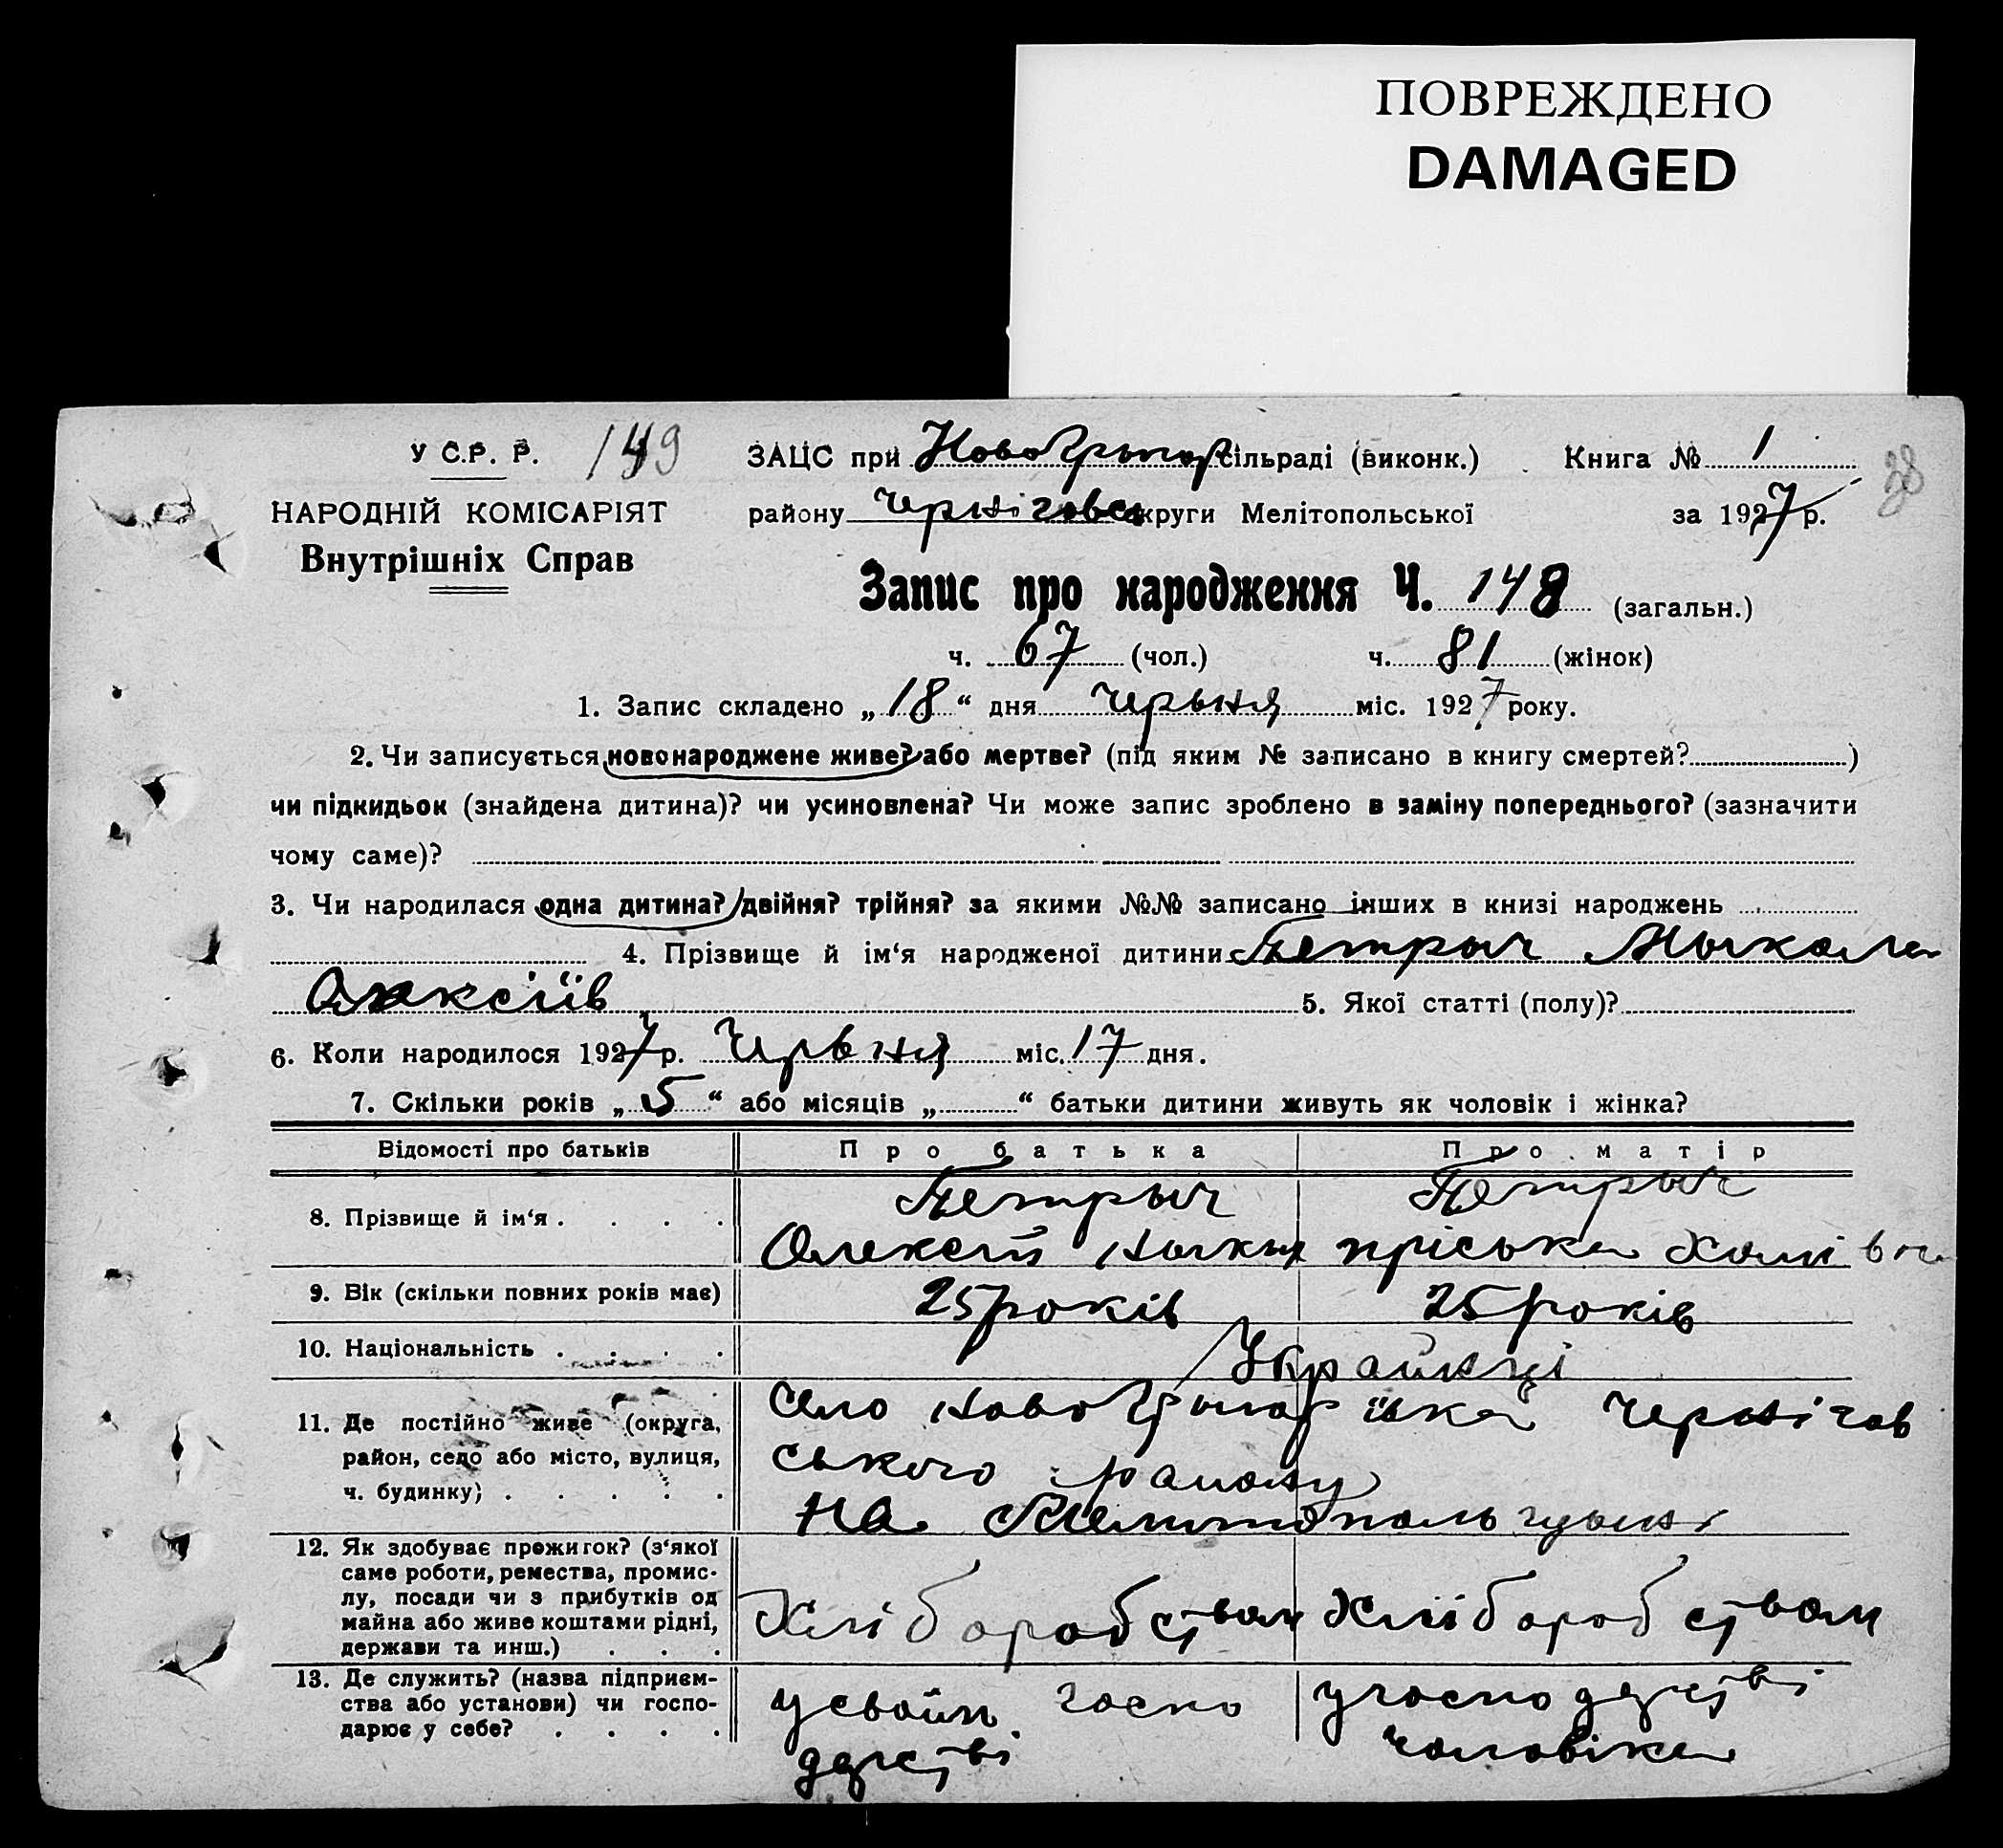 ПОВРЕЖДЕНО
DAMAGED
У С.Р. Р. 149 ЗАЦС при НовоГригор сільраді (виконк.) Книга № 1
38
НАРОДНІЙ КОМІСАРІЯТ району Черніговськ округи Мелітопольської за 1927 р.
Внутрішніх Справ
Запис про народження Ч. 148 (загальн.)
ч. 67 (чол.) ч. 81 (жінок)
1. Запис складено „ 18 “ дня Червня міс. 1927 року.
2. Чи записується новонароджене живе? або мертве? (під яким № записано в книгу смертей? )
чи підкидьок (знайдена дитина)? чи усиновлена? Чи може запис зроблено в заміну попереднього? (зазначити
чому саме)?
3. Чи народилася одна дитина? двійня? трійня? за якими №№ записано інших в книзі народжень
4. Прізвище й ім‘я народженої дитини Петрыч Мыкола
Олексіїв 5. Якої статті (полу)?
6. Коли народилося 1927 р. Червня міс. 17 дня.
7. Скільки років „ 5 “ або місяців „ “ батьки дитини живуть як чоловік і жінка?
Відомості про батьків Про батька Про матір
8. Прізвище й ім‘я . . . . Петрыч Петрыч
Олексій Пріська
9. Вік (скільки повних років має) 25 років 25 років
10. Національність . . . . Украйнці
11. Де постійно живе (округа, село НовоГригорівка Чернігов
район, село або місто, вулиця, ського району
ч. будинку) . . . . . на Мелитопольщыні
12. Як здобуває прожиток? (з‘якої
саме роботи, ремества, промис-
лу, посади чи з прибутків од
майна або живе коштами рідні, Хліборобством Хліборобством
держави та инш.) . . .
13. Де служить? (назва підприєм-
ства або установи) чи госпо- у свойм госпо у господарстві
дарює у себе? . . . . дарстві чоловіка